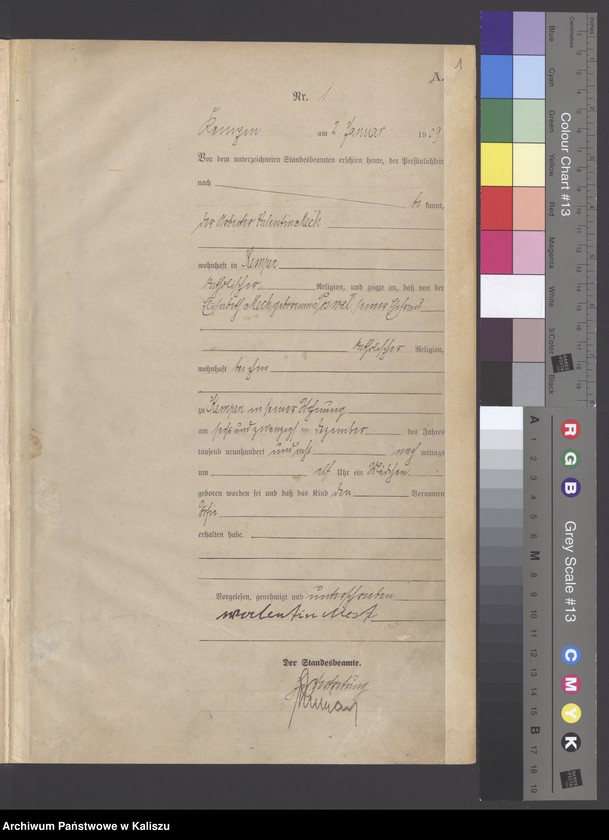 1
A.
Nr. 1
Kempen am 2 Januar 1909
Vor dem unterzeichneten Standesbeamten erschien heute, der Persönlichkeit
nach
be kannt,
der Arbeiter Valentin Mech
wohnhaft in Kempen
katholischer Religion, und zeigte an, daß von der
Elisabeth Mech geborenen seiner Ehefrau
katholischer Religion,
wohnhaft bei ihm
zu Kempen in seiner Wohnung
am sechsundzwanzigsten Dezember des Jahres
tausend neunhundert und acht nach mittags
um elf Uhr ein Mädchen
geboren worden sei und daß das Kind den Vornamen
erhalten habe.
Vorgelesen, genehmigt und unterschrieben
walentin
Der Standesbeamte.
In Vertretung
Blue
Cyan
Green
Yellow
Red
Magenta
White
3/Color
Black
Centimetres
Inches
Colour Chart #13
A 1 2 3 4 5 6 M 8 9 10 11 12 13 14 15 B 17 18 19
R
G
B
Grey Scale #13
C
M
Y
K
Archiwum Państwowe w Kaliszu